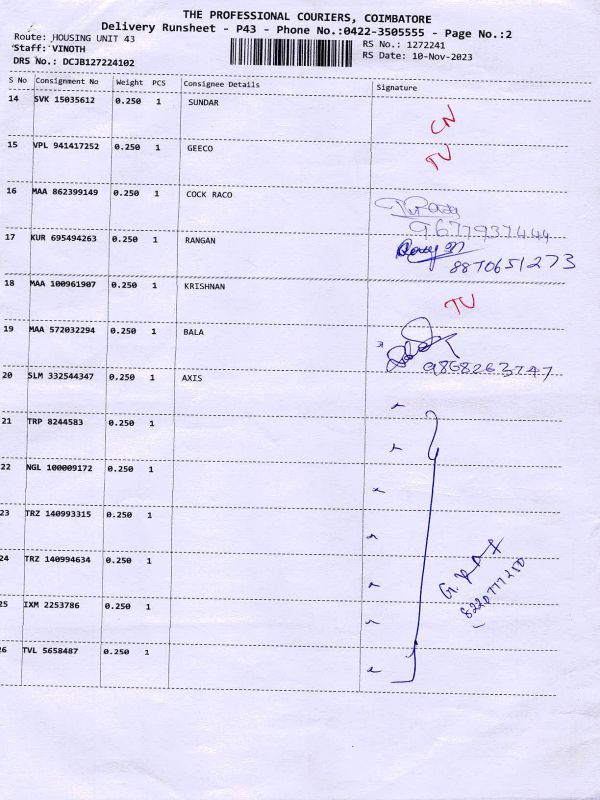 THE PROFESSIONAL COURIERS, COIMBATORE
Delivery Runsheet - P43 - Phone No.:0422-3505555 - Page No.:2
Route: HOUSING UNIT 43
RS No.: 1272241
Staff: VINOTH
RS Date: 10-Nov-2023
DRS No.: DCJB127224102
S No Consignment No Weight PCS Consignee Details Signature
14 SVK 15035612 0.250 1 SUNDAR
CN
15 VPL 941417252 0.250 1 GEECO
TV
16 MAA 862399149 0.250 1 COCK RACO
9677937444
17 KUR 695494263 0.250 1 RANGAN
8870651273
18 MAA 100961907 0.250 1 KRISHNAN
TV
19 MAA 572032294 0.250 1 BALA
9868263747
20 SLM 332544347 0.250 1 AXIS
21 TRP 8244583 0.250 1
22 NGL 100009172 0.250 1
23 TRZ 140993315 0.250 1
24 TRZ 140994634 0.250 1
8220777250
25 IXM 2253786 0.250 1
26 TVL 5658487 0.250 1